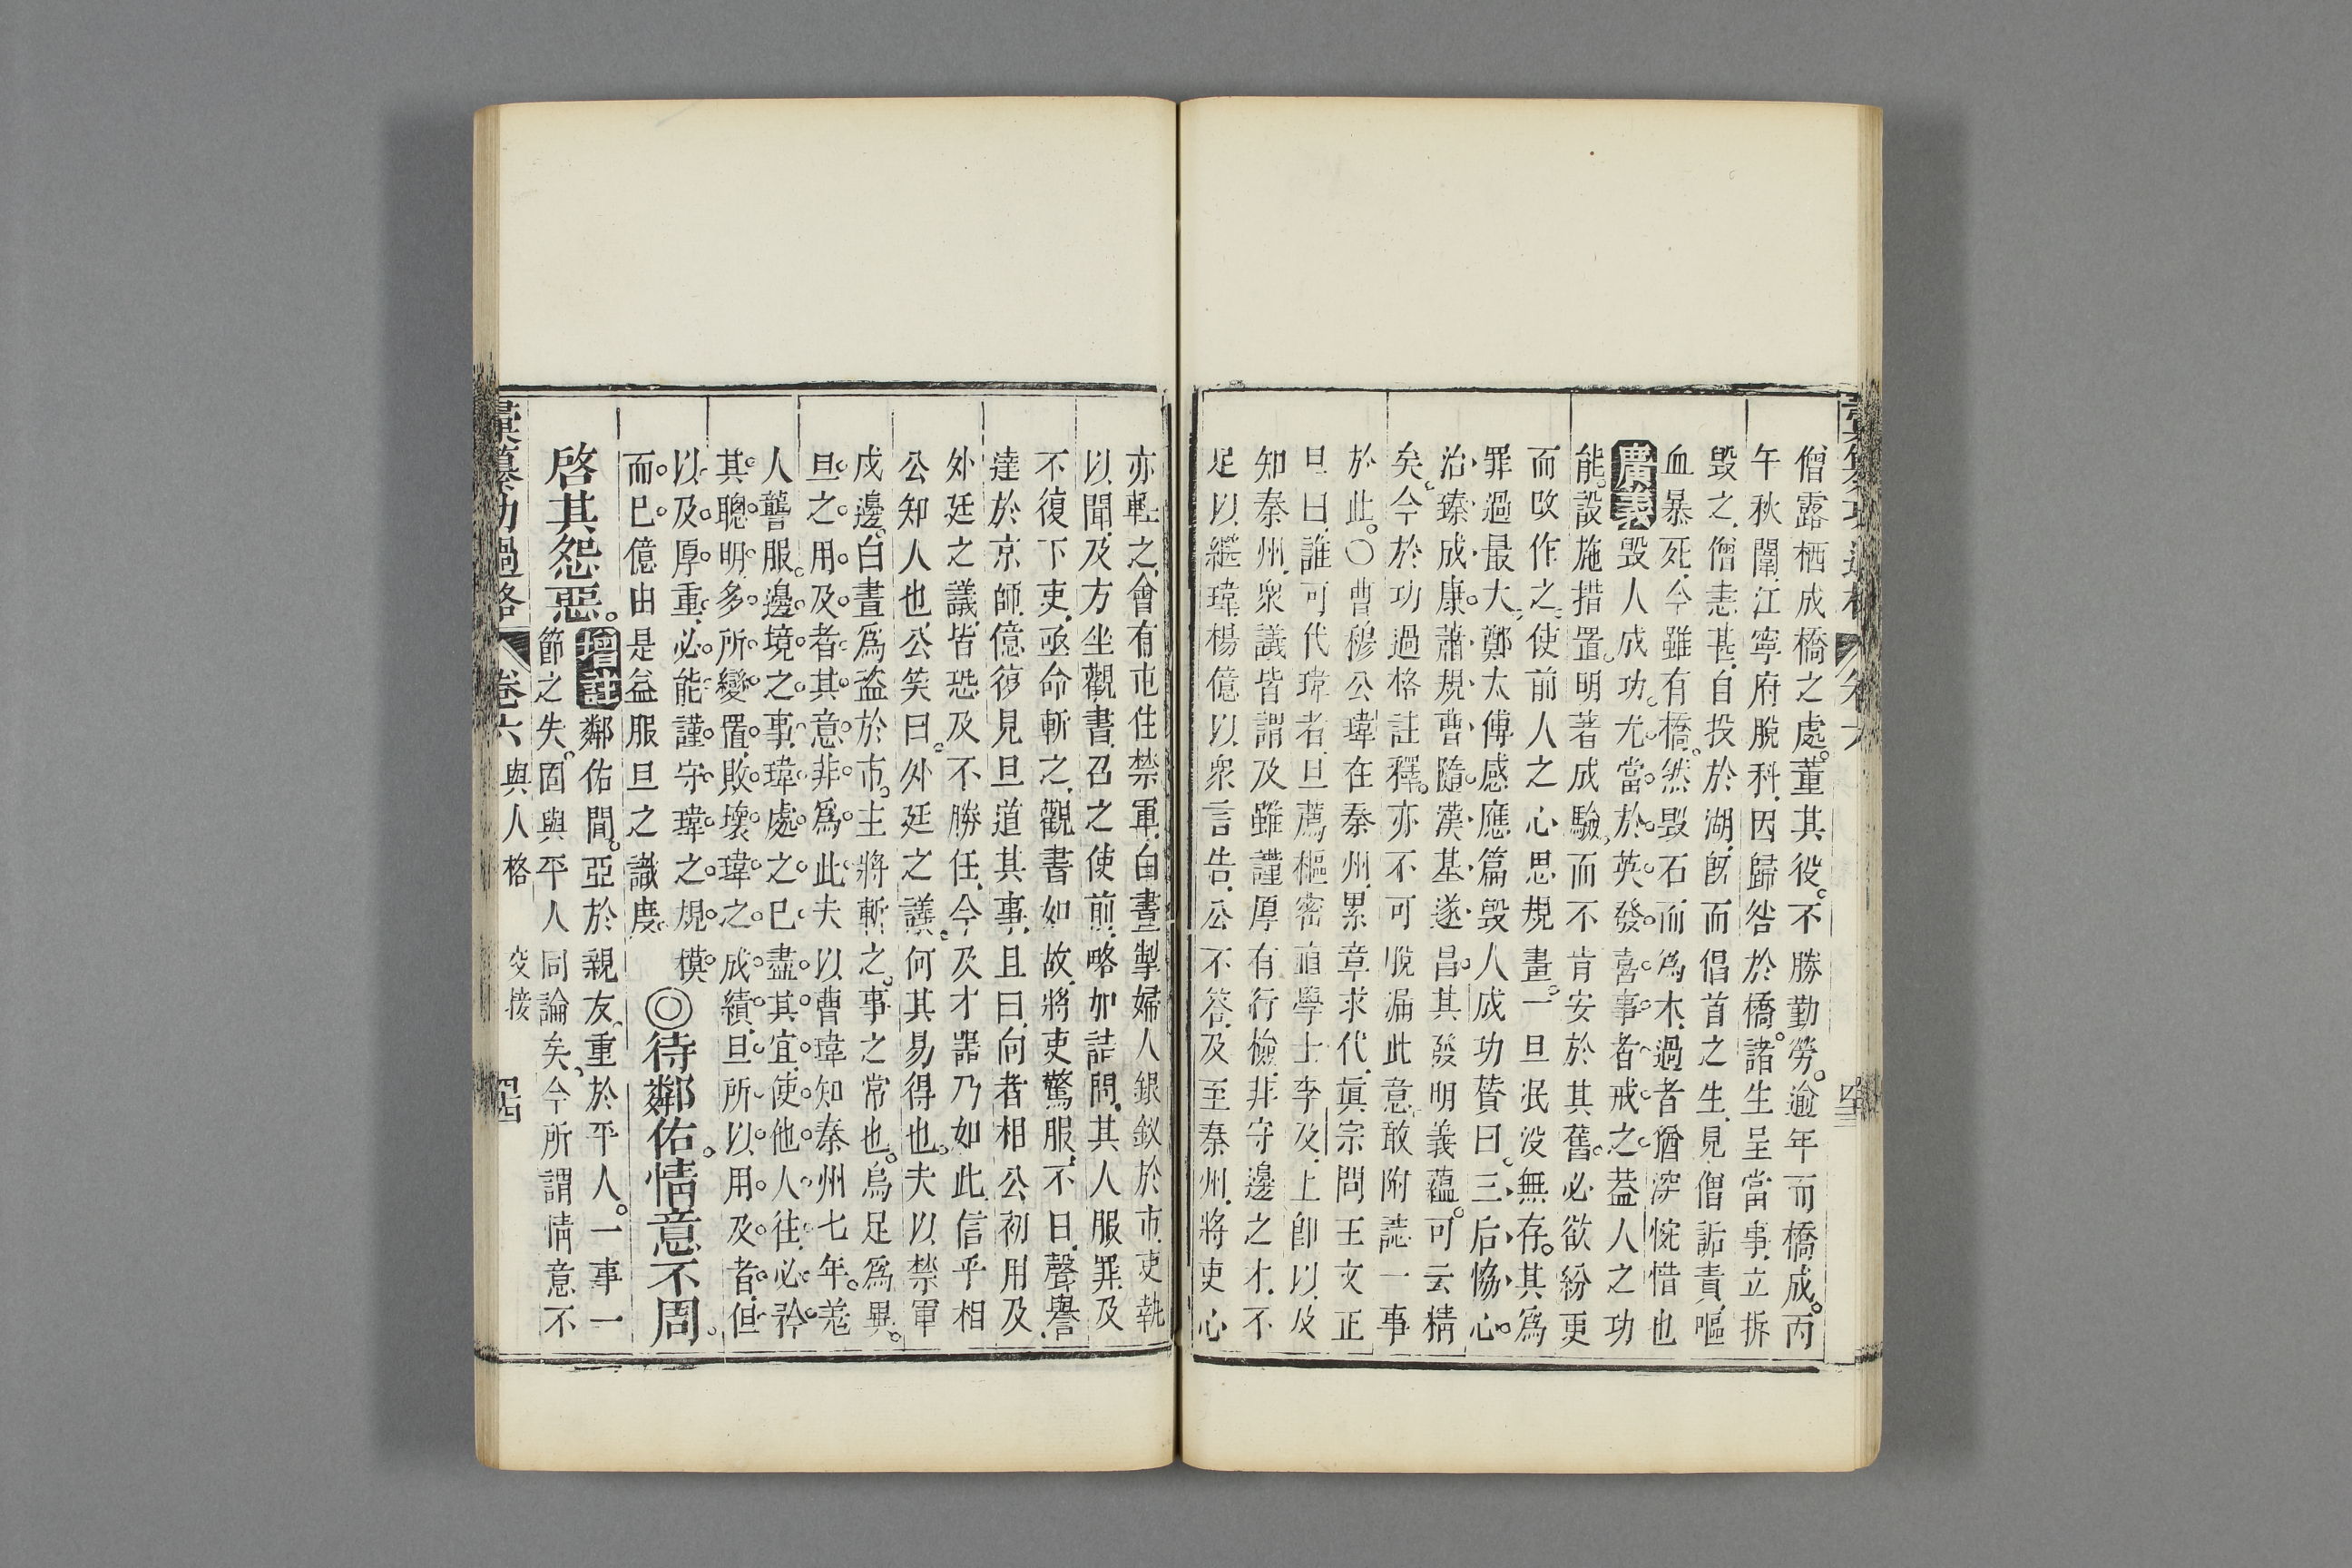 僧露栖成橋之處。董其役。不勝勤勞。逾年而橋成。丙
午秋闈、江寧府脫科、因歸咎於橋。諸生呈當事、立拆
毀之、僧恚甚、自投於湖、旣而倡首之生、見僧詬責、嘔
血暴死、今雖有橋。然毀石而爲木、過者猶深惋惜也
廣義毀人成功。尤當於英發喜事者戒之葢人之功
能。設施措置。明著成驗、而不肯安於其舊。必欲紛更
而改作之、使前人之心思規畫。一旦泯没無存。其爲
罪過最大、鄭太傅感應篇毀人成功贊曰。三后恊心。
治臻成康。蕭規曹隨。漢基遂昌。其發明義蘊。可云精
矣。今於功過格註釋。亦不可脫漏此意、敢附誌一事
於此。○曹穆公瑋在秦州、累章求代、眞宗問王文正
旦曰、誰可代瑋者、旦薦樞密直學士李及、上卽以及
知秦州、衆議皆謂及雖謹厚有行檢、非守邊之才、不
足以繼瑋、楊億以衆言告、公不答、及至秦州、將吏心
亦輕之、會有屯住禁軍、白晝掣婦人銀釵於市、吏執
以聞、及方坐觀書、召之使前、略加詰問、其人服罪及
不復下吏、亟命斬之、觀書如故、將吏驚服、不日、聲譽
達於京師、億復見旦道其事、且曰、向者相公初用及、
外廷之議、皆恐及不勝任、今及才器乃如此、信乎相
公知人也、公笑曰。外廷之議、何其易得也。夫以禁軍
戍邊。白晝爲盜於市。主將斬之。事之常也。烏足爲異。
旦之用及者其意非爲此夫以曹瑋知秦州七年。羌
人讋服。邊境之事、瑋處之已盡其宜。使他人往。必矜
其聰明多所變置。敗壞瑋之成績、旦所以用及者。但
以及厚重必能謹守瑋之規模
而已。億由是益服旦之識度。◎待鄰佑情意不周。
啓其怨惡。增註鄰佑間。亞於親友、重於平人。一事一
節之失。固與平人同論矣、今所謂情意不
彙纂功過格 卷六 與人格 交接 四四